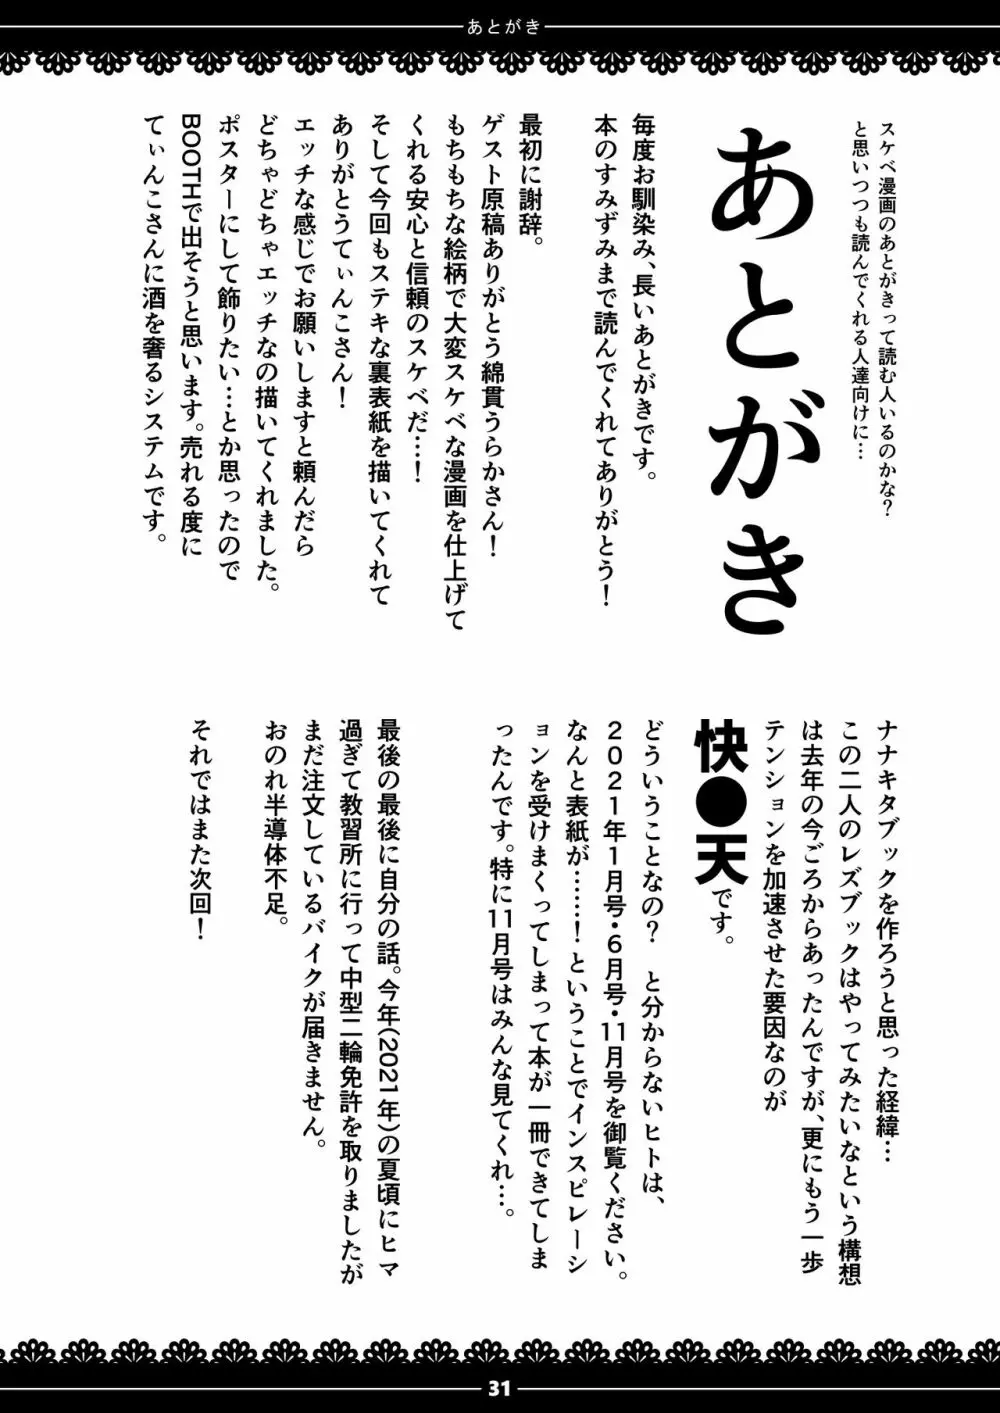 あとがき
スケベ漫画のあとがきって読む人いるのかな？
と思いつつも読んでくれる人達向けに…
あとがき
毎度お馴染み、長いあとがきです。
本のすみずみまで読んでくれてありがとう！
最初に謝辞。
ゲスト原稿ありがとう綿貫うらかさん！
もちもちな絵柄で大変スケベな漫画を仕上げて
くれる安心と信頼のスケベだ…！
そして今回もステキな裏表紙を描いてくれて
ありがとうてぃんこさん！
エッチな感じでお願いしますと頼んだら
どちゃどちゃエッチなの描いてくれました。
ポスターにして飾りたい…とか思ったので
BOOTHで出そうと思います。売れる度に
てぃんこさんに酒を奢るシステムです。
ナナキタブックを作ろうと思った経緯…
この二人のレズブックはやってみたいなという構想
は去年の今ごろからあったんですが、更にもう一歩
テンションを加速させた要因なのが
快●天です。
どういうことなの？　と分からないヒトは、
２０２１年１月号・６月号・11月号を御覧ください。
なんと表紙が……！ということでインスピレーシ
ョンを受けまくってしまって本が一冊できてしま
ったんです。特に11月号はみんな見てくれ…。
最後の最後に自分の話。今年(2021年)の夏頃にヒマ
過ぎて教習所に行って中型二輪免許を取りましたが
まだ注文しているバイクが届きません。
おのれ半導体不足。
それではまた次回！
31